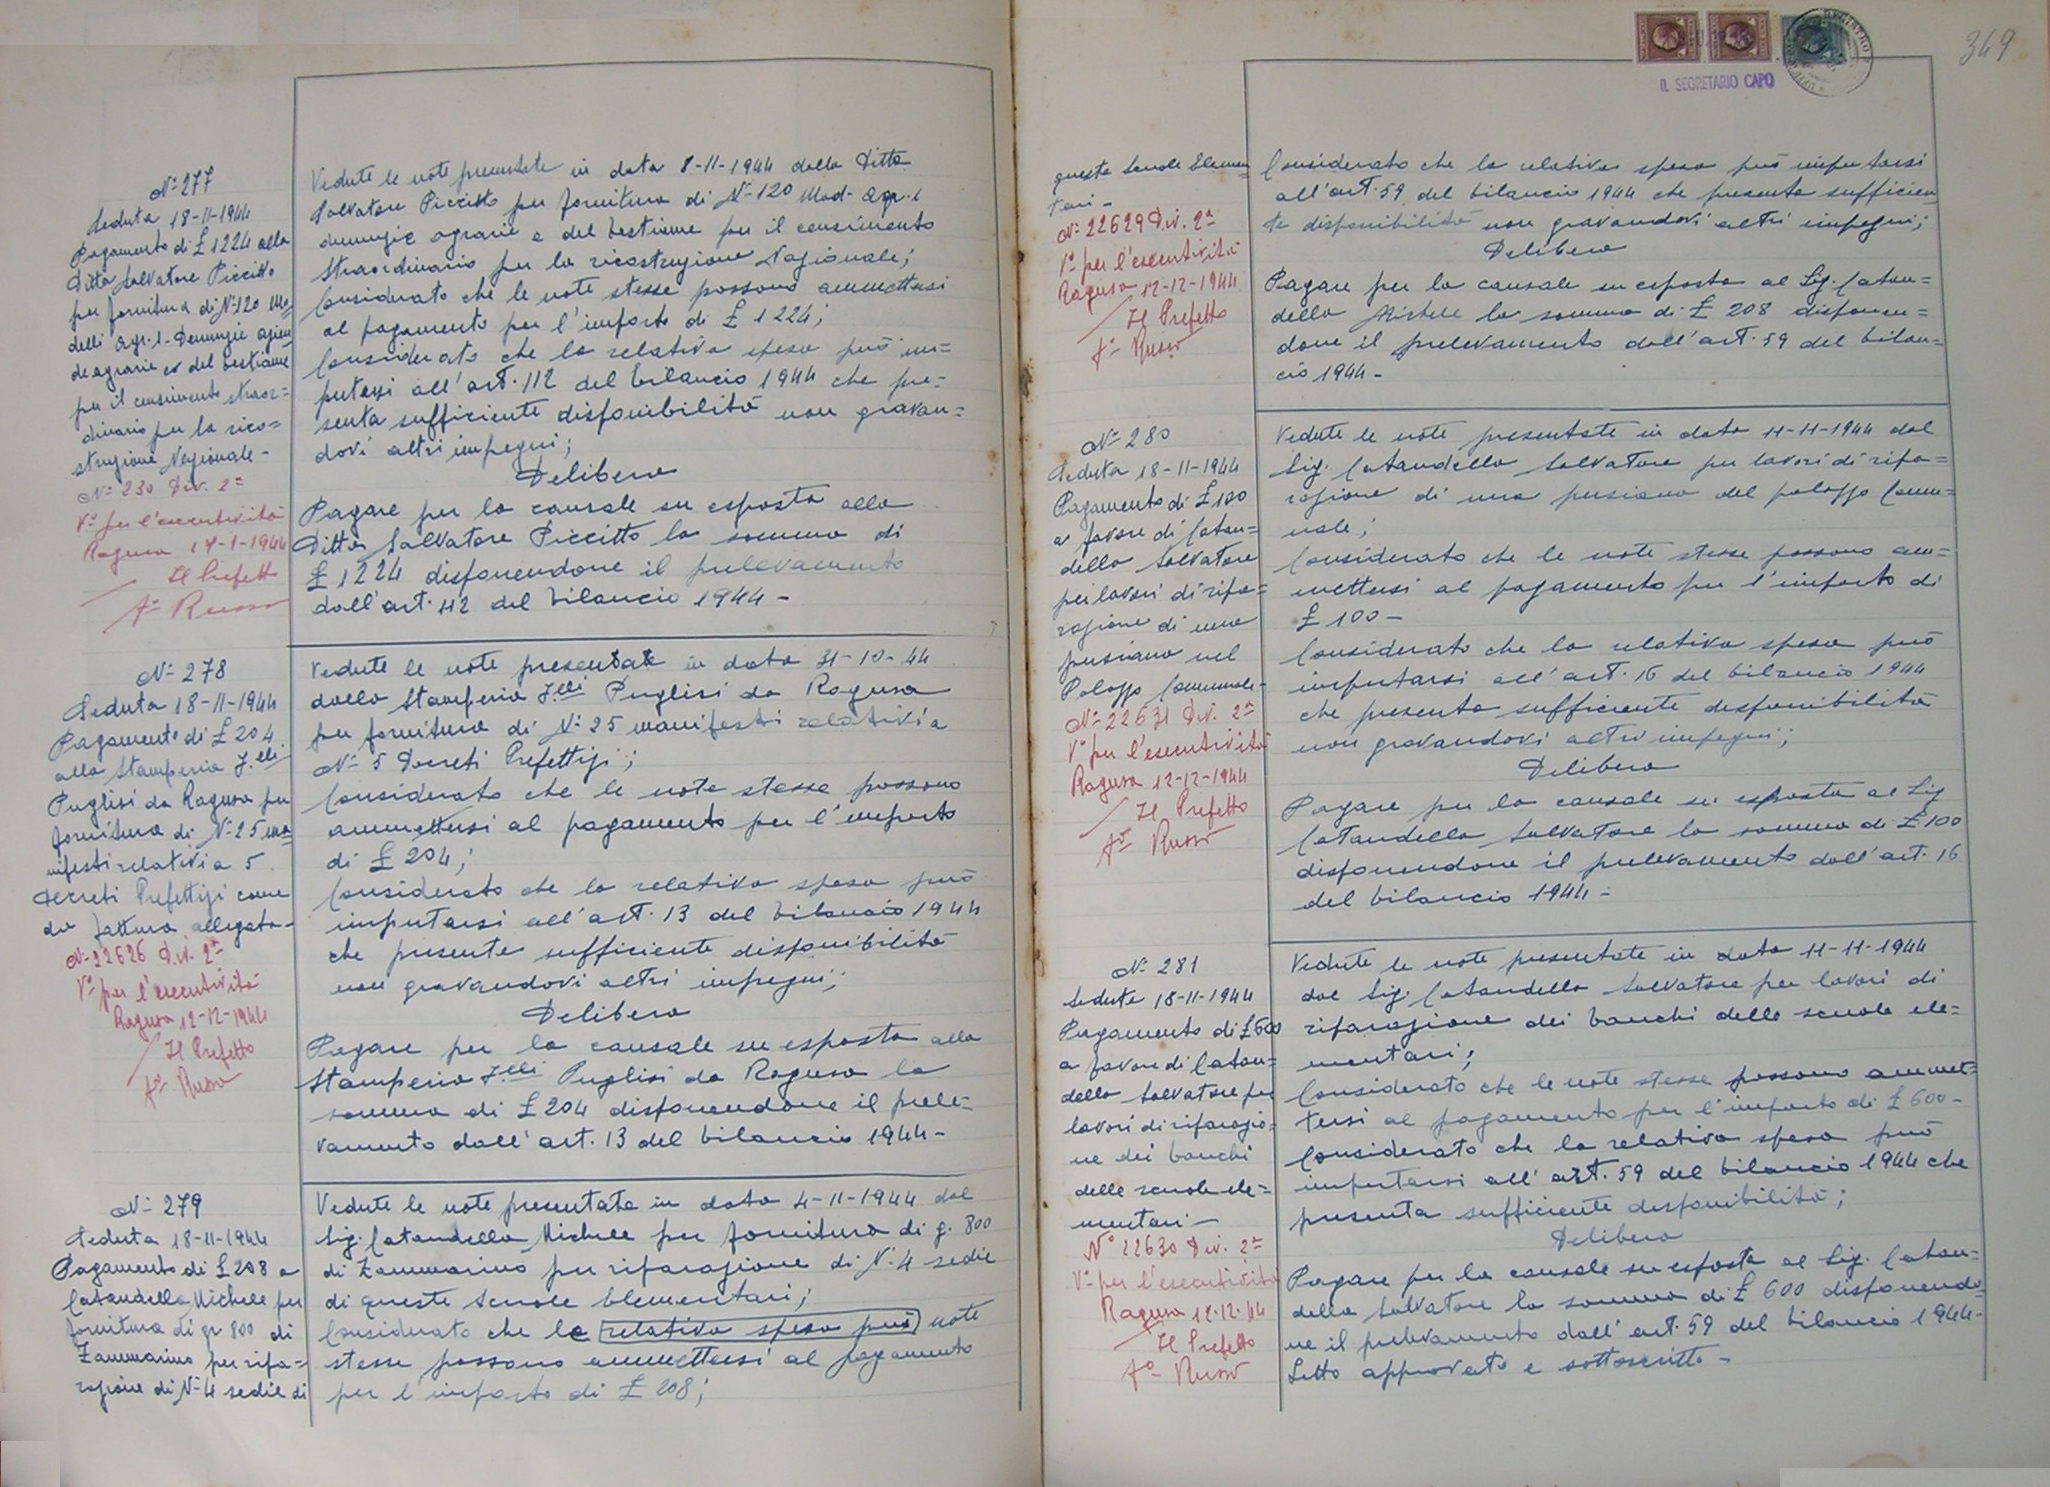 N° 277
Seduta 18-11-1944
Pagamento di £ 1224 alla
Ditta Salvatore Piccitto
per fornitura di N° 120 Mo
delli agr. 1 - Denunzie azien
de agrarie e del bestiame
per il censimento straor=
dinario per la rico=
struzione Nazionale -
N° 230 Div. 2ª
V° per l'esecutività
Ragusa 17-1-1944
Il Prefetto
F° Russo
Vedute le note presentate in data 8-11-1944 dalla Ditta
Salvatore Piccitto per fornitura di N° 120 Mod. agr. 1
denunzie agrarie e del bestiame per il censimento
straordinario per la ricostruzione Nazionale;
Considerato che le note stesse possono ammettersi
al pagamento per l'importo di £ 1224;
Considerato che la relativa spesa può im=
putarsi all'art. 112 del bilancio 1944 che pre=
senta sufficiente disponibilità non gravan=
dovi altri impegni;
Delibera
Pagare per la causale su esposta alla
Ditta Salvatore Piccitto la somma di
£ 1224 disponendone il prelevamento
dall'art. 112 del bilancio 1944 -
N° 278
Seduta 18-11-1944
Pagamento di £ 204
alla Stamperia F.lli
Puglisi da Ragusa per
fornitura di N° 25 ma
nifesti relativi a 5
Decreti Prefettizi come
da fattura allegata -
N° 22626 Div. 2ª
V° per l'esecutività
Ragusa 12-12-1944
Il Prefetto
F° Russo
Vedute le note presentate in data 31-10-44
dalla Stamperia F.lli Puglisi da Ragusa
per fornitura di N° 25 manifesti relativi a
N° 5 Decreti Prefettizi;
Considerato che le note stesse possono
ammettersi al pagamento per l'importo
di £ 204;
Considerato che la relativa spesa può
imputarsi all'art. 13 del bilancio 1944
che presenta sufficiente disponibilità
non gravandovi altri impegni;
Delibera
Pagare per la causale su esposta alla
Stamperia F.lli Puglisi da Ragusa la
somma di £ 204 disponendone il prele=
vamento dall'art. 13 del bilancio 1944 -
N° 279
Seduta 18-11-1944
Pagamento di £ 208 a
Catandella Michele per
fornitura di gr 800 di
Zammarino per ripa=
razione di N° 4 sedie di
Vedute le note presentata in data 4-11-1944 dal
Sig. Catandella Michele per fornitura di g. 800
di Zammarino per riparazione di N° 4 sedie
di queste Scuole Elementari;
Considerato che le relativa spesa può note
stesse possono ammettersi al pagamento
per l'importo di £ 208;
349
IL SEGRETARIO CAPO
queste Scuole Elemen
tari -
N° 22629 Div. 2ª
V° per l'esecutività
Ragusa 12-12-1944
Il Prefetto
F° Russo
Considerato che la relativa spesa può imputarsi
all'art. 59 del bilancio 1944 che presenta sufficien
te disponibilità non gravandovi altri impegni;
Delibera
Pagare per la causale su esposta al Sig. Catan=
della Michele la somma di £ 208 disponen=
done il prelevamento dall'art. 59 del bilan=
cio 1944 -
N° 280
Seduta 18-11-1944
Pagamento di £ 100
a favore di Catan=
della Salvatore
per lavori di ripa=
razione di una
persiana nel
Palazzo Comunale -
N° 22631 Div. 2ª
V° per l'esecutività
Ragusa 12-12-1944
Il Prefetto
F° Russo
Vedute le note presentate in data 11-11-1944 dal
Sig. Catandella Salvatore per lavori di ripa=
razione di una persiana del palazzo Comu=
nale;
Considerato che le note stesse possono am=
mettersi al pagamento per l'importo di
£ 100 -
Considerato che la relativa spesa può
imputarsi all'art. 16 del bilancio 1944
che presenta sufficiente disponibilità
non gravandovi altri impegni;
Delibera
Pagare per la causale su esposta al Sig
Catandella Salvatore la somma di £ 100
disponendone il prelevamento dall'art. 16
del bilancio 1944 -
N° 281
Seduta 18-11-1944
Pagamento di £ 600
a favore di Catan=
della Salvatore per
lavori di riparazio=
ne dei banchi
delle scuole ele=
mentari -
N° 22630 Div. 2ª
V° per l'esecutività
Ragusa 12.12.44
Il Prefetto
F° Russo
Vedute le note presentate in data 11-11-1944
dal Sig. Catandella Salvatore per lavori di
riparazione dei banchi delle scuole ele=
mentari;
Considerato che le note stesse possono ammet=
tersi al pagamento per l'importo di £ 600 -
Considerato che la relativa spesa può
imputarsi all'art. 59 del bilancio 1944 che
presenta sufficiente disponibilità;
Delibera
Pagare per la causale su esposta al Sig. Catan=
della Salvatore la somma di £ 600 disponendo
ne il prelevamento dall'art. 59 del bilancio 1944 -
Letto approvato e sottoscritto -